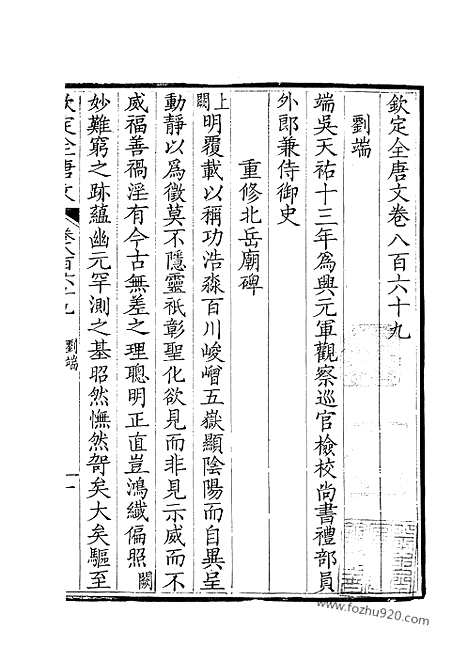 欽定全唐文卷八百六十九
劉端
端吳天祐十三年為興元軍觀察巡官檢校尚書禮部員
外郎兼侍御史
重修北岳廟碑
上闕明覆載以稱功浩淼百川峻嶒五嶽顯陰陽而自異呈
動靜以為徵莫不隱靈祇彰聖化欲見而非見示威而不
威福善禍淫有今古無差之理聰明正直豈鴻纖偏照闕
妙難窮之跡蘊幽元罕測之基昭然憮然哿矣大矣驅至
欽定全唐文 卷八百六十九 劉端 一
www.fozhu920.com